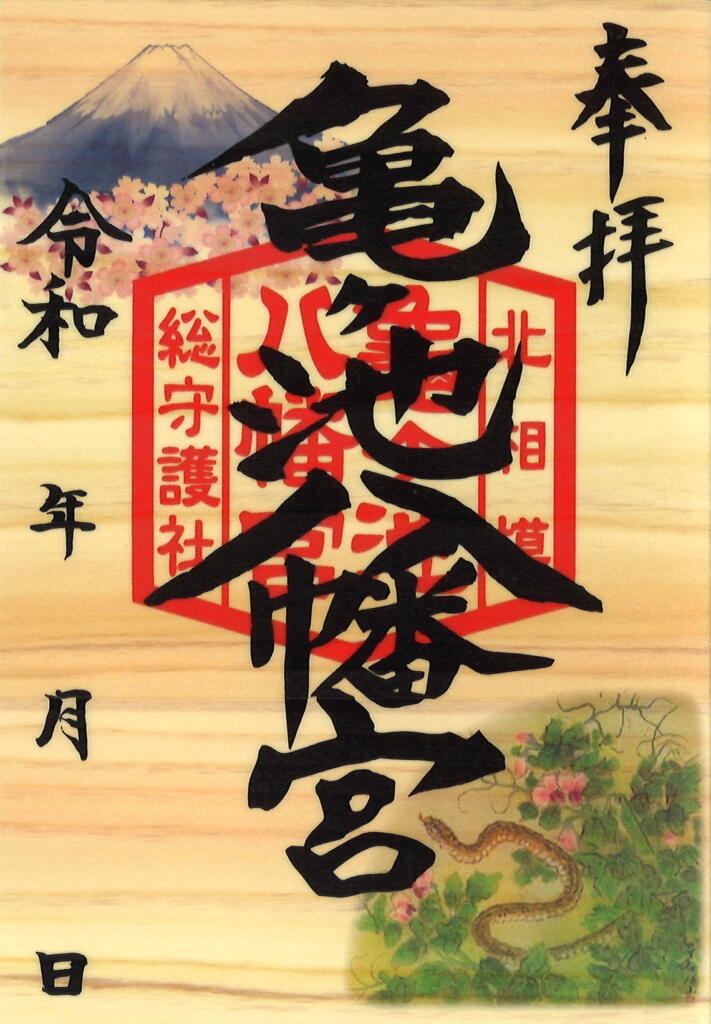 奉拝
亀ヶ池八幡宮
北相模
亀ヶ池
八幡宮
総守護社
令和 年 月 日